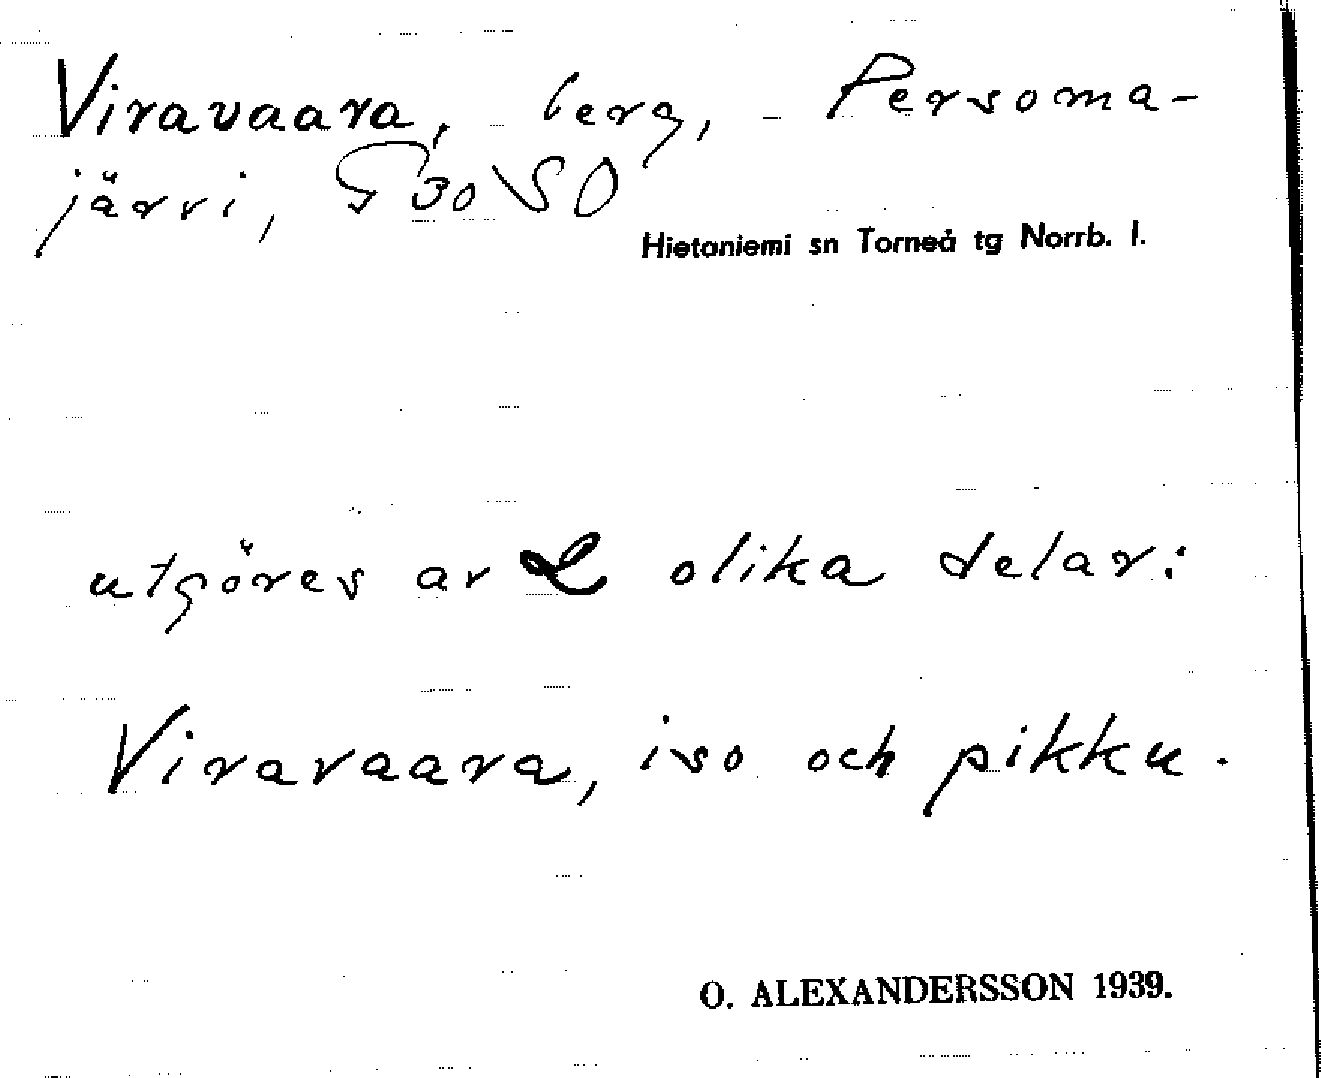 Viravaara, berg, Persoma-
järvi, G 30 SO
Hietaniemi sn Torneå tg Norrb. l.
utgöres av 2 olika delar:
Viravaara, iso och pikku.
O. ALEXANDERSSON 1939.